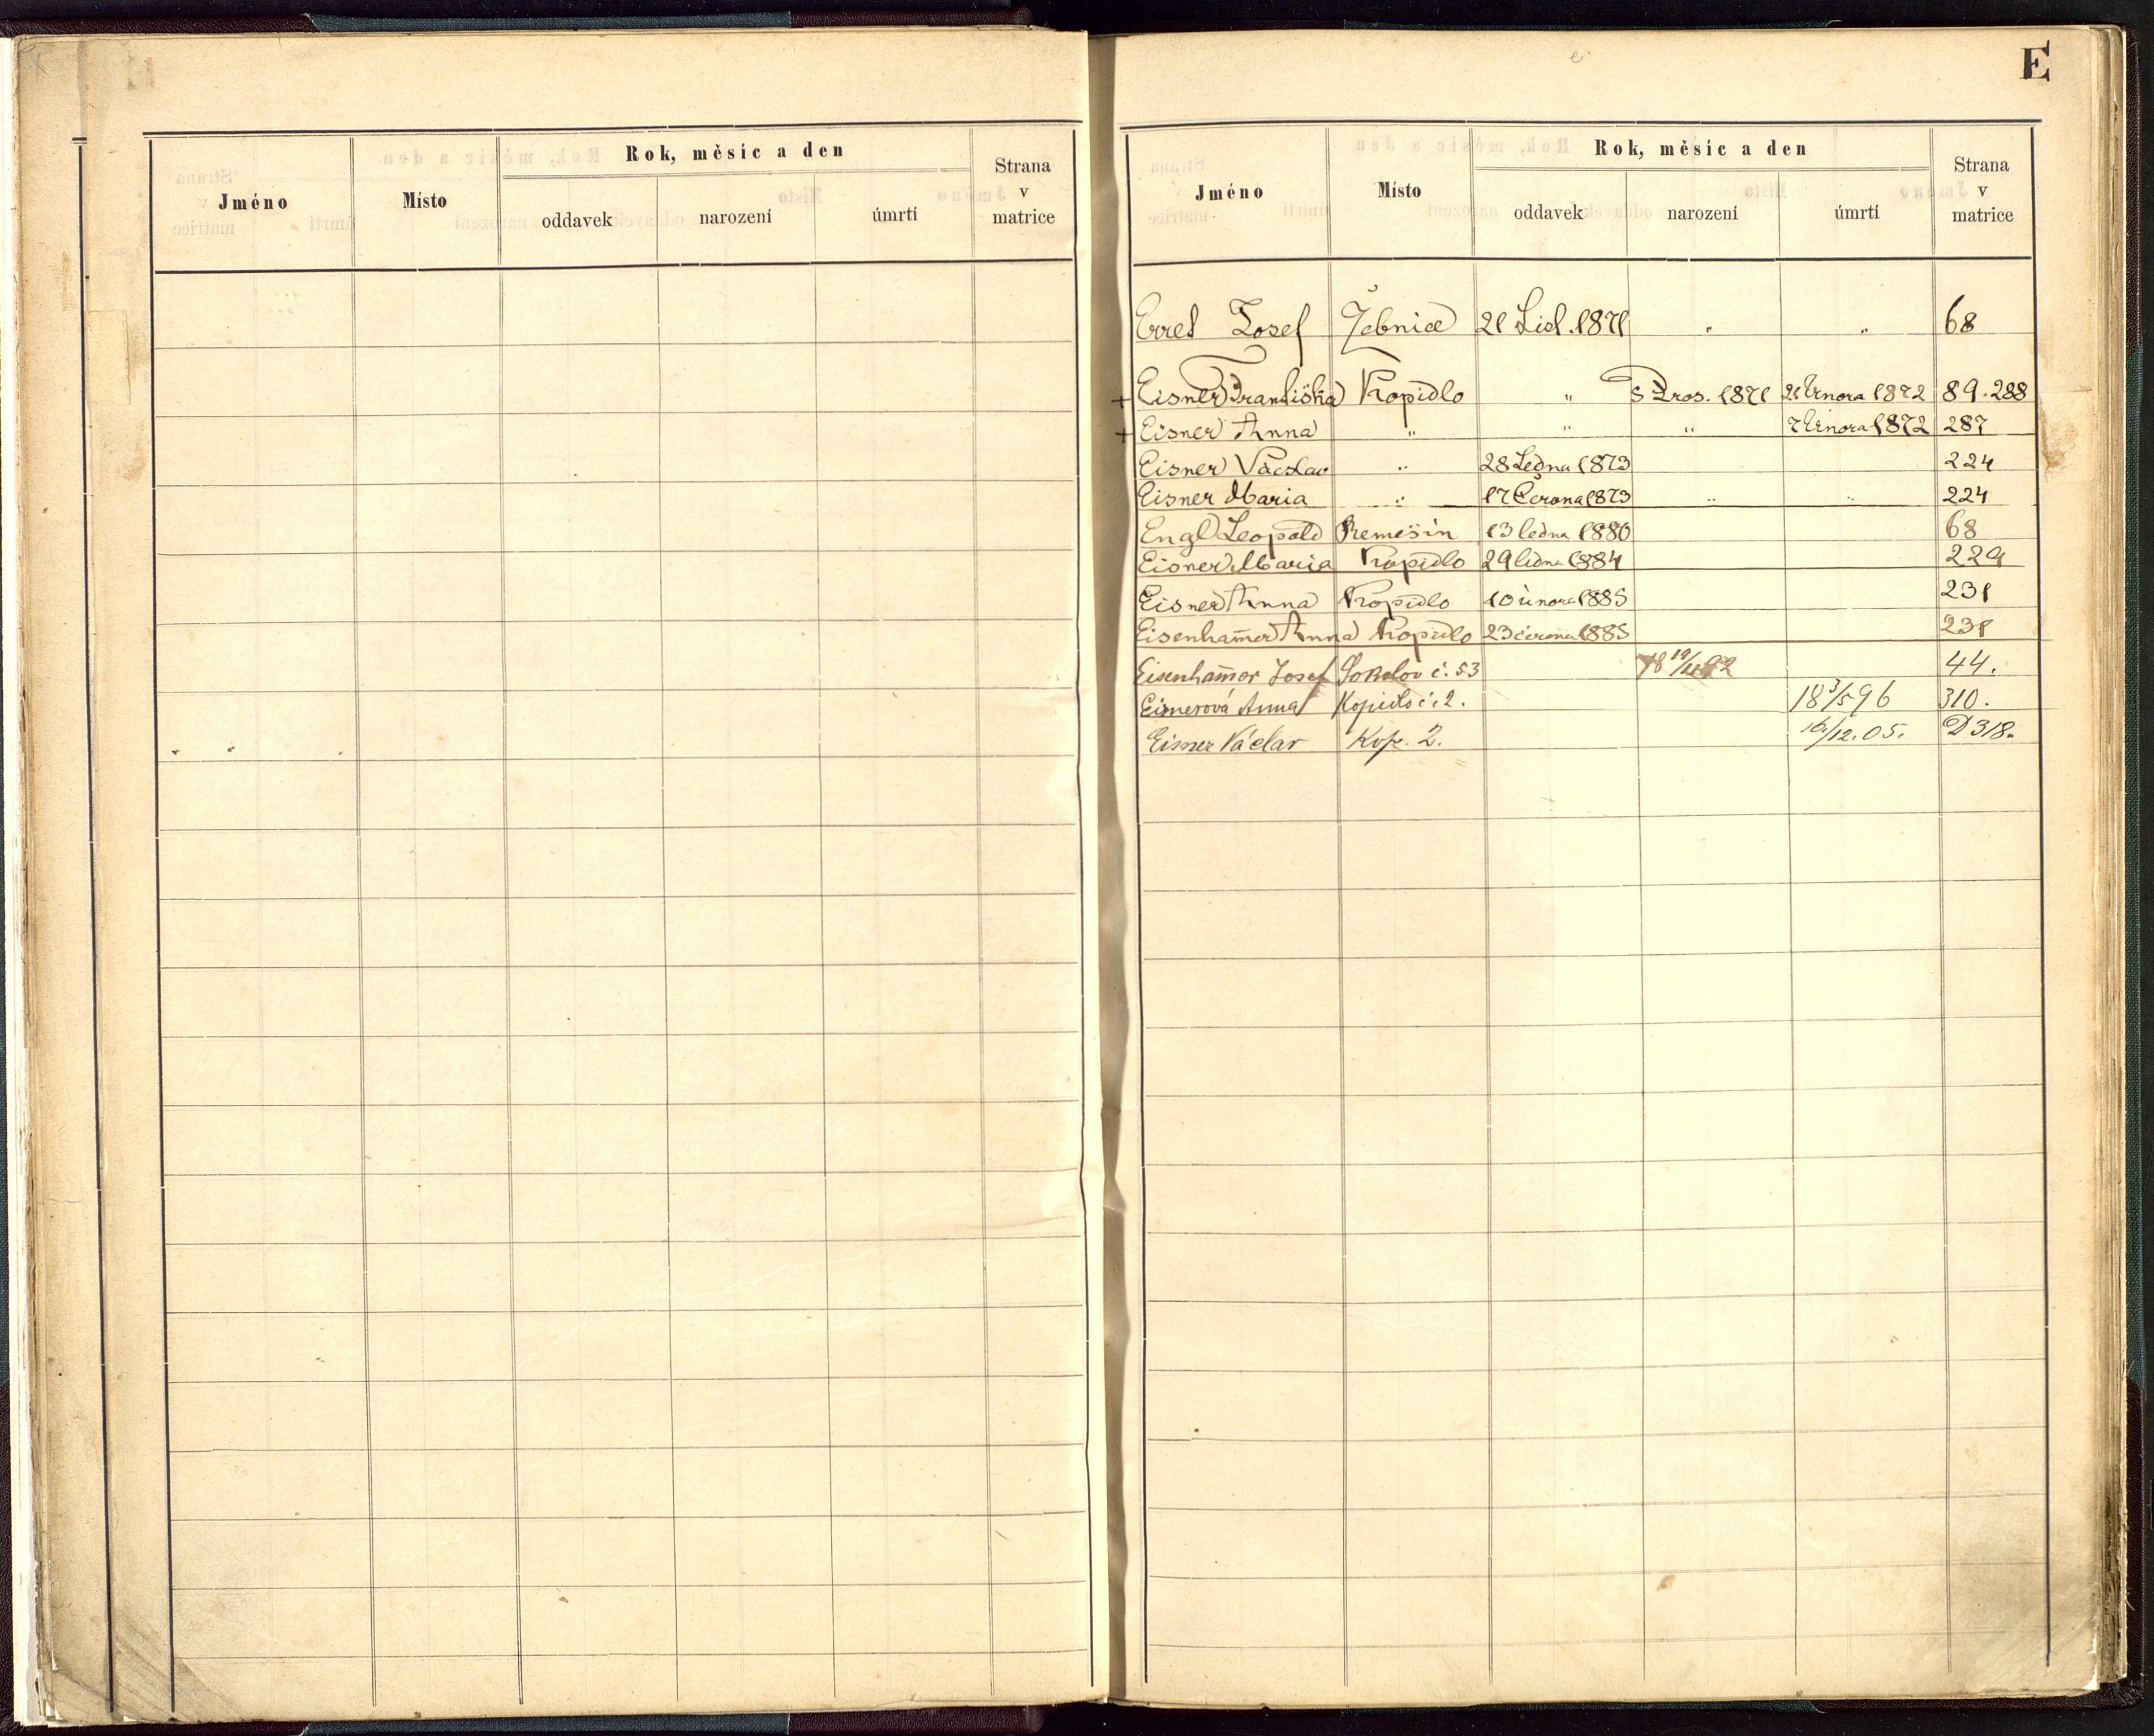 E
Rok, měsíc a den
Jméno Místo oddavek narození úmrtí Strana v matrice
Rok, měsíc a den
Jméno Místo oddavek narození úmrtí Strana v matrice
Josef Žebnice 21 List. 1871 " " 68
+ Eisner Františka Kopidlo " 5 Pros. 1871 21 Února 1872 89. 288
+ Eisner Anna " " " 7 Února 1872 287
Eisner Václav " 28 Ledna 1873 224
Eisner Maria " 17 Června 1873 " " 224
Engl Leopold 13 ledna 1880 68
Eisner Maria Kopidlo 29 ledna 1884 229
Eisner Anna Kopidlo 10 února 1885 231
Eisenham̄er Anna Kopidlo 23 června 1885 231
Eisenham̄er Josef Sokolov č. 53 44.
Eisnerová Anna Kopidlo č. 2. 18 3/5 96 310.
Eisner Václav Kop. 2. 16/12. 05. D 318.